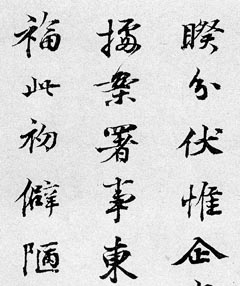 睽分伏惟企
據案署事東
福此初僻陋